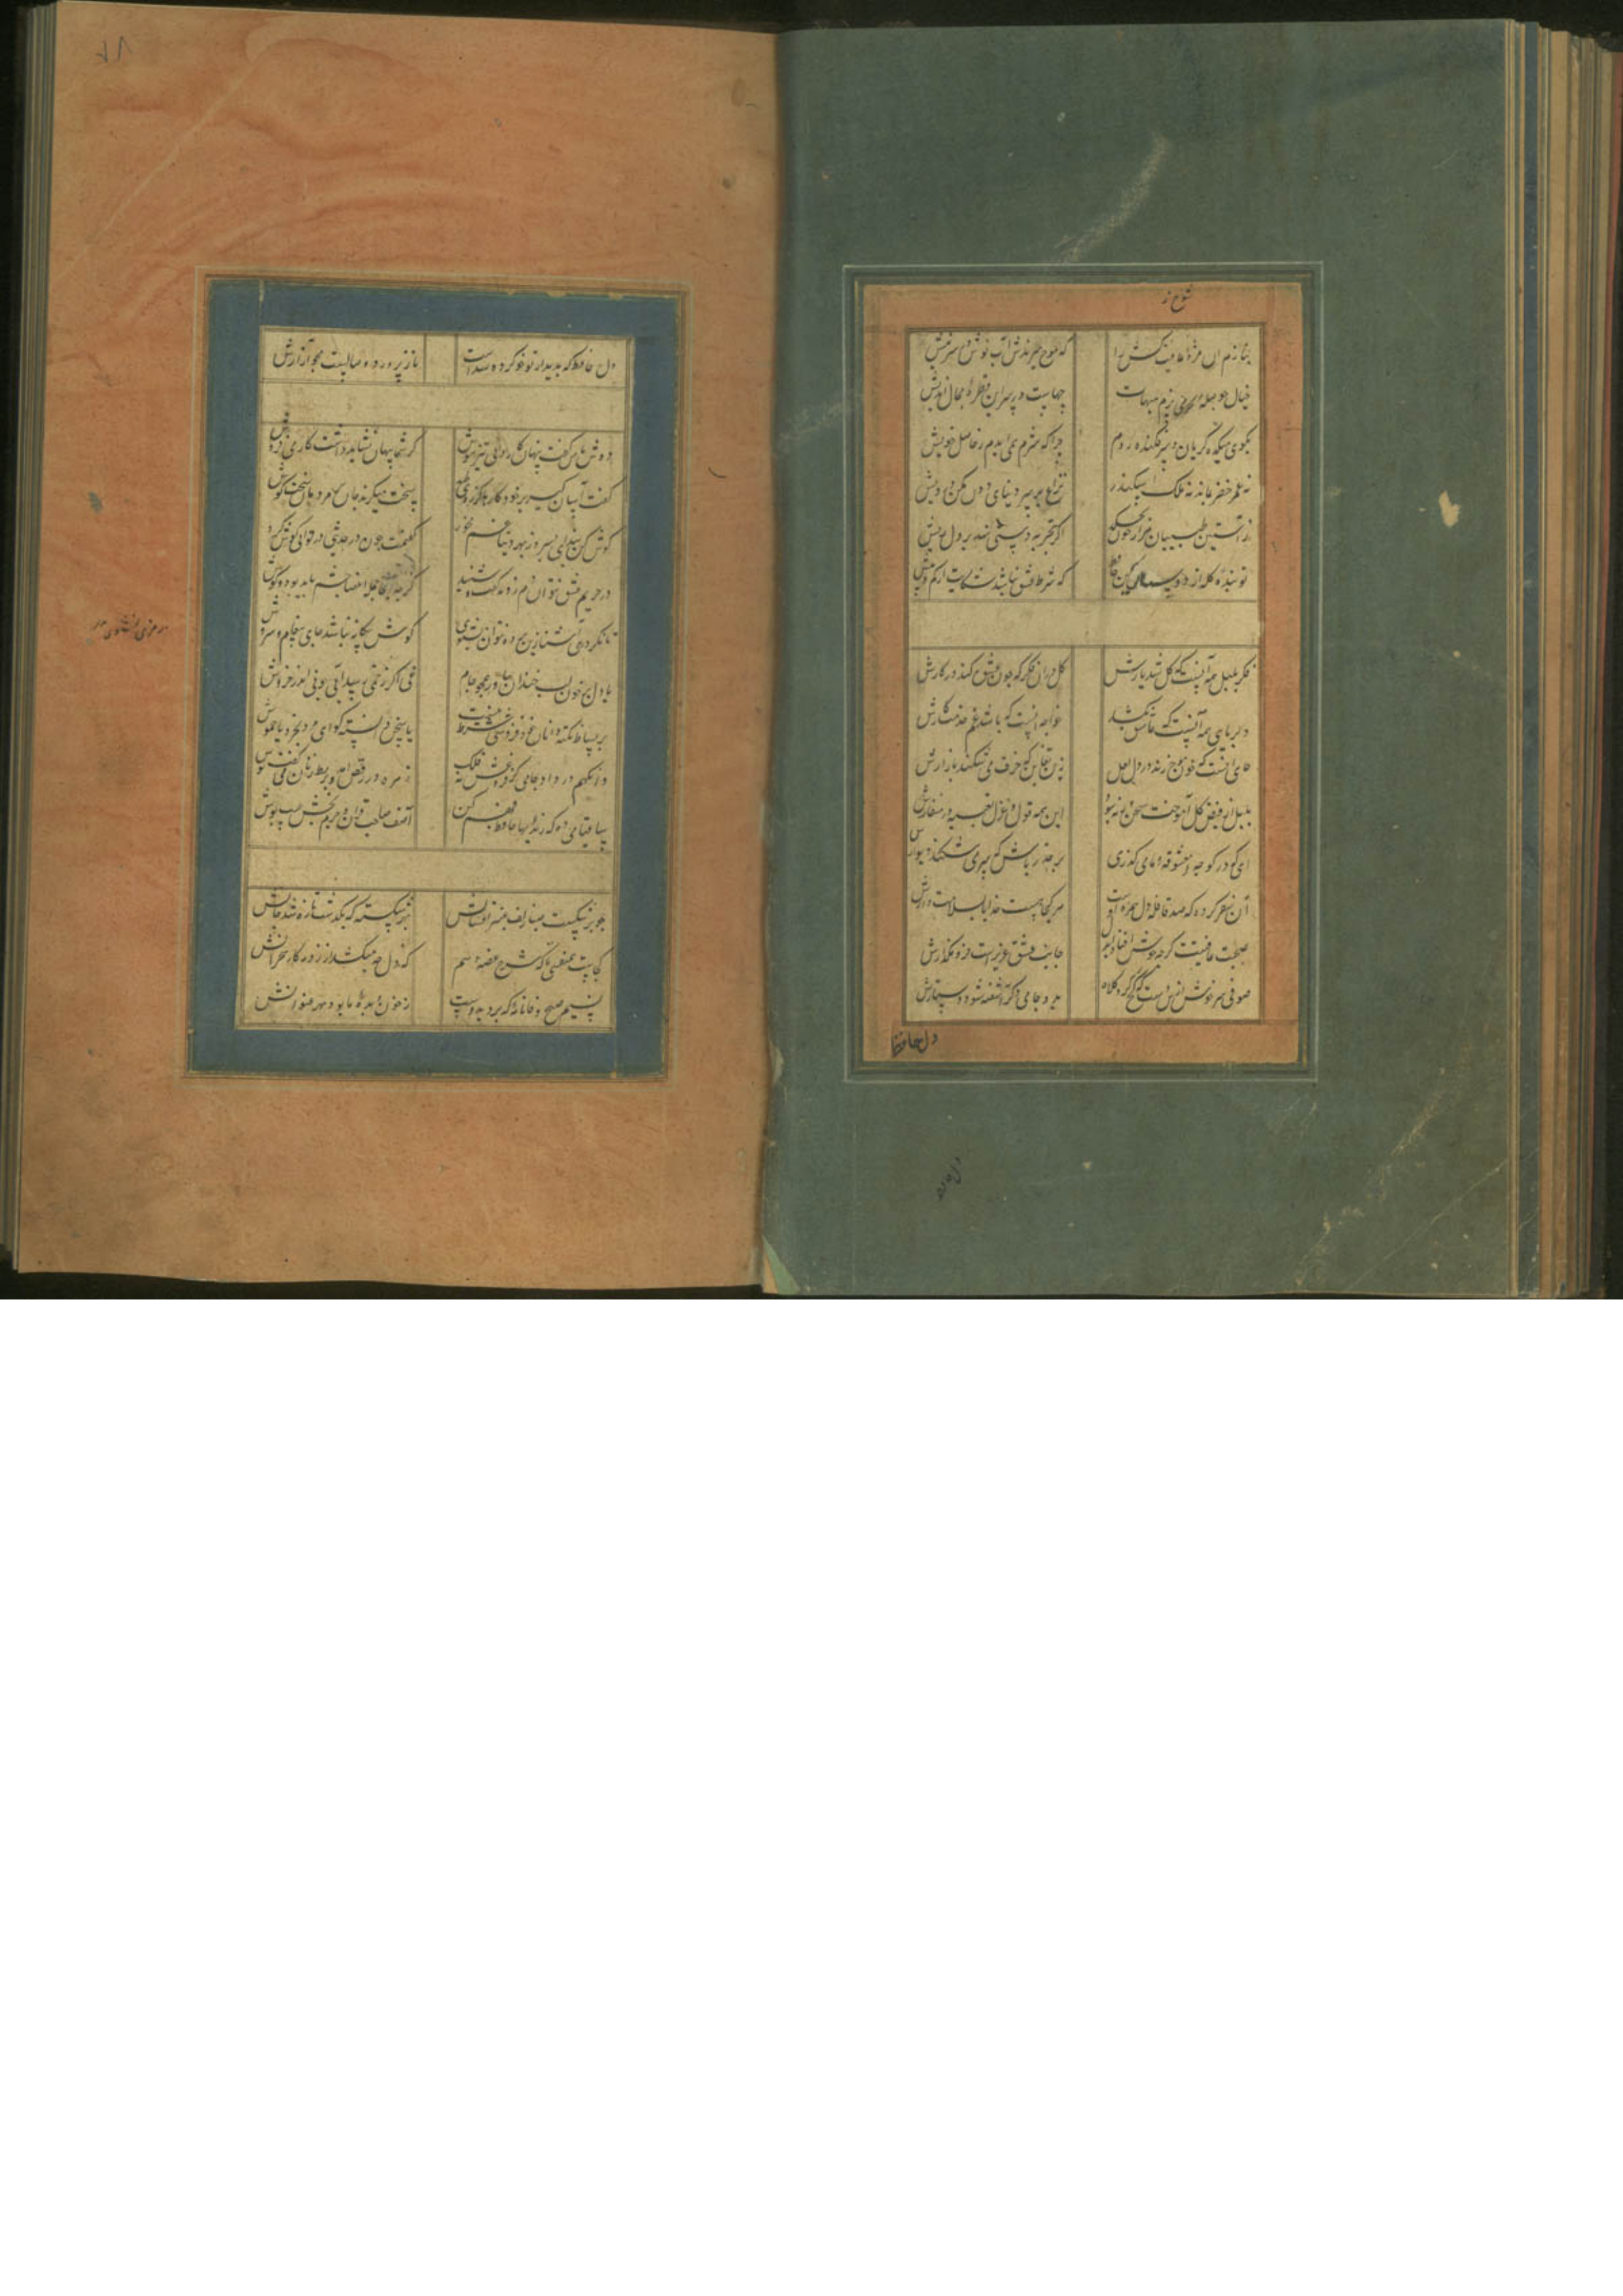 شوخ
بنازم آن مژهٔ عافیت کش را که موج میزندش آب نوش بر سر نیش
خیال حوصلهٔ می پزم هیهات چهاست در سر این قطرهٔ محال اندیش
بکوی میکده گریان و سرفکنده روم چرا که شرم همی آیدم ز حاصل خویش
نه عمر خضر بماند نه ملک اسکندر نزاع بر سر دنیای دون مکن درویش
ز آستین طبیبان هزار خون بچکد اگر تجربه دستی نهند بر دل ریش
تو بندهٔ گله از مکن که شرط عشق نباشد شکایت از کم و بیش
فکر بلبل همه آنست که گل شد یارش گل در آن فکر که چون عشوه کند در کارش
دلربایی همه آن نیست که عاشق بکشند خواجه آنست که باشد غم خدمتکارش
جای آنست که خون موج زند در دل لعل زین تغابن که خزف می شکند بازارش
بلبل از فیض گل آموخت سخن ورنه نبود این همه قول و غزل تعبیه در منقارش
ای که در کوچهٔ معشوقهٔ ما می گذری بر حذر باش که سر می شکند دیوارش
آن سفر کرده که صد قافله دل همره اوست هر کجا هست خدایا بسلامت دارش
صحبت عافیتت گرچه خوش افتاد ای دل جانب عشق عزیز است فرو مگذارش
صوفی سرخوش ازین دست که کج کرد کلاه بدو جام دگر آشفته شود دستارش
دل حافظ
دل حافظ که بدیدار تو خوگر شده است ناز پرورد وصالست مجو آزارش
دوش با من گفت پنهان کاردانی تیزهوش کز شما پنهان نشاید داشت کار می فروش
گفت آسان گیر بر خود کارها کز روی طبع سخت میگیرد جهان بر مردمان سخت کوش
گوش کن پند ای پسر وز بهر دنیا غم مخور گفتمت چون در حدیثی گر توانی گوش کرد
در حریم عشق نتوان دم زد از گفت و شنید گرچه آنجا جمله اعضا چشم باید بود و گوش
تا نگردی آشنا زین پرده رمزی نشنوی گوش بیگانه نباشد جای پیغام سروش
با دل خونین لب خندان بیاور همچو جام نی اگر زخمی رسد آیی چو نی اندر خروش
بر بساط نکته دانان خودفروشی شرط نیست یا سخن دانسته گو ای مرد بخرد یا خموش
وانگهم در داد جامی کز فروغش بر فلک زهره در رقص آمد و بربط زنان می گفت نوش
ساقیا می ده که رندیهای حافظ فهم کرد آصف صاحب قران جرم بخش عیب پوش
چو بر شکست صبا زلف عنبر افشانش بهر شکسته که بگذشت تازه شد جانش
کجاست همنفسی تا که شرح غصه دهم که دل چه میکشد از روزگار هجرانش
نسیم صبح وفا نامهٔ که برد بدوست ز خون دیدهٔ ما بود مهر عنوانش